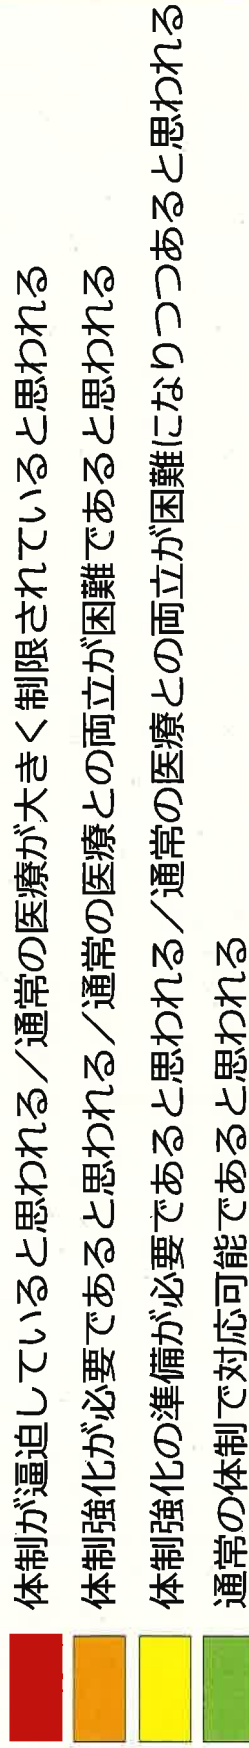 体制が逼迫していると思われる／通常の医療が大きく制限されていると思われる
体制強化が必要であると思われる／通常の医療との両立が困難であると思われる
体制強化の準備が必要であると思われる／通常の医療との両立が困難になりつつあると思われる
通常の体制で対応可能であると思われる